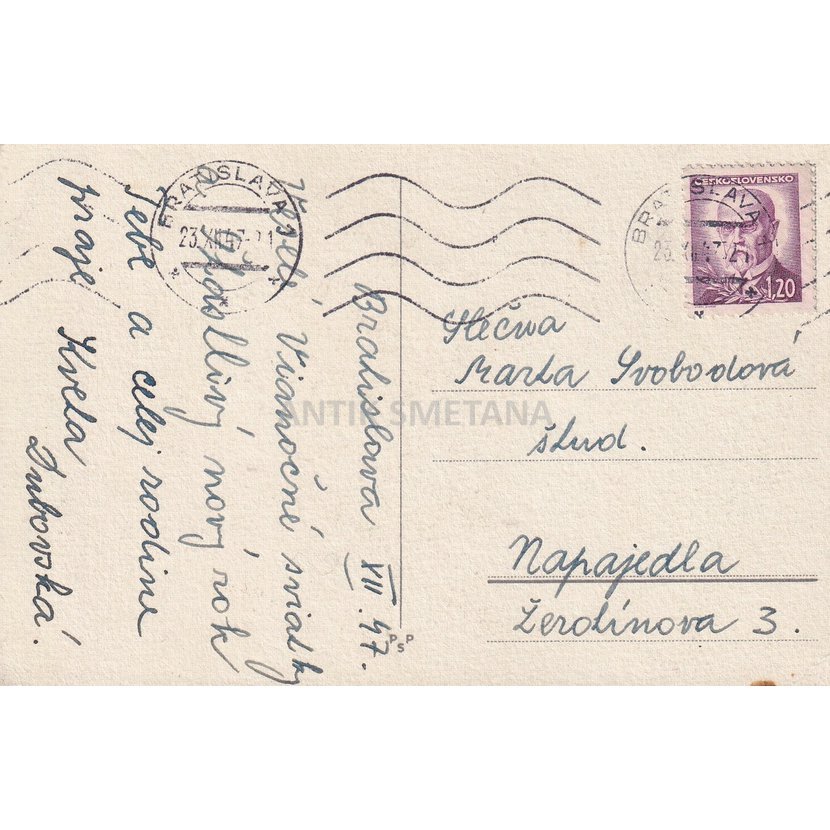 Bratislava XII. 47.
Veselé Vianočné sviatky
Šťastlivý nový rok
Tebe a celej rodine
praje Kveta
Dubovská.
BRATISLAVA
23.XII.47-21
BRATISLAVA
23.XII.47-21
ČESKOSLOVENSKO
1,20
Slečna
Marta Svobodová
štud.
Napajedla
Žerotínova 3.
PSP
ANTIK SMETANA